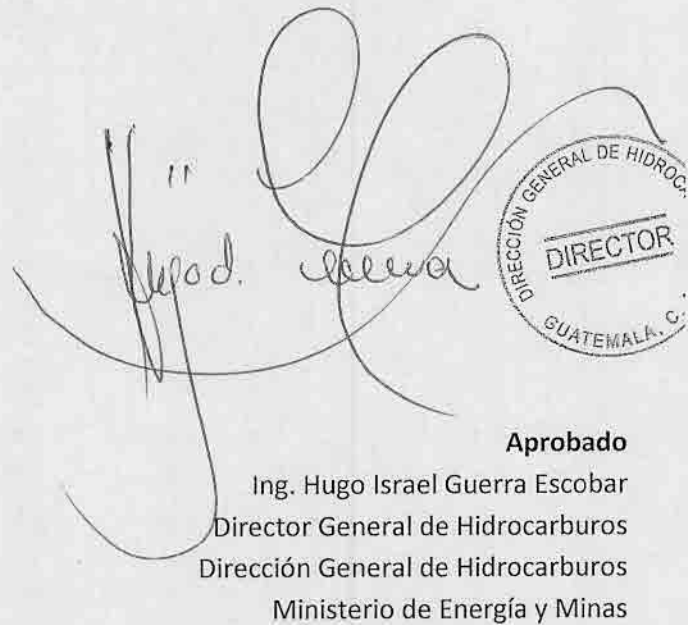 DIRECCIÓN GENERAL DE HIDROCA
DIRECTOR
GUATEMALA, C.
Aprobado
Ing. Hugo Israel Guerra Escobar
Director General de Hidrocarburos
Dirección General de Hidrocarburos
Ministerio de Energía y Minas